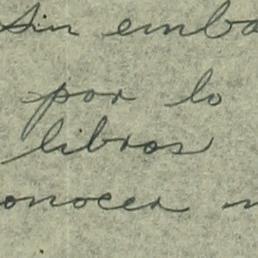 Sin emba
por lo
libros
onocer